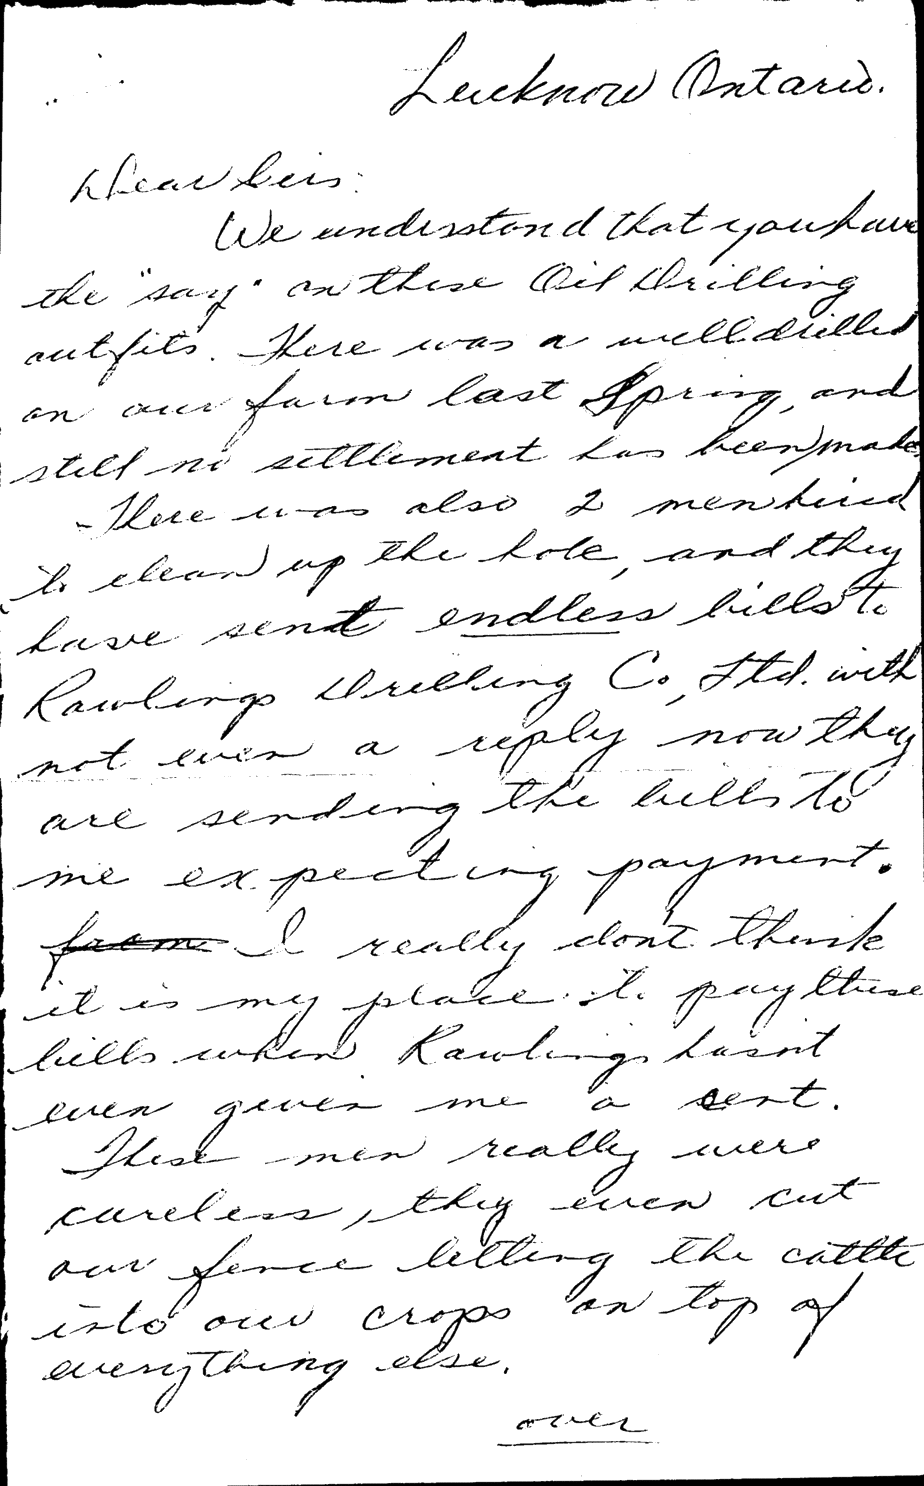 Lucknow Ontario.
Dear Sirs:
We understand that you have
the "say" on these Oil Drilling
outfits. There was a well drilled
on our farm last Spring, and
still no settlement has been made.
- There was also 2 men hired
to clean up the hole, and they
have sent endless bills to
Rawlings Drilling Co, Ltd. with
not even a reply now they
are sending the bills to
me expecting payment.
from I really don't think
it is my place to pay these
bills when Rawlings hasn't
even given me a cent.
These men really were
careless, they even cut
our fence letting the cattle
into our crops on top of
everything else.
over